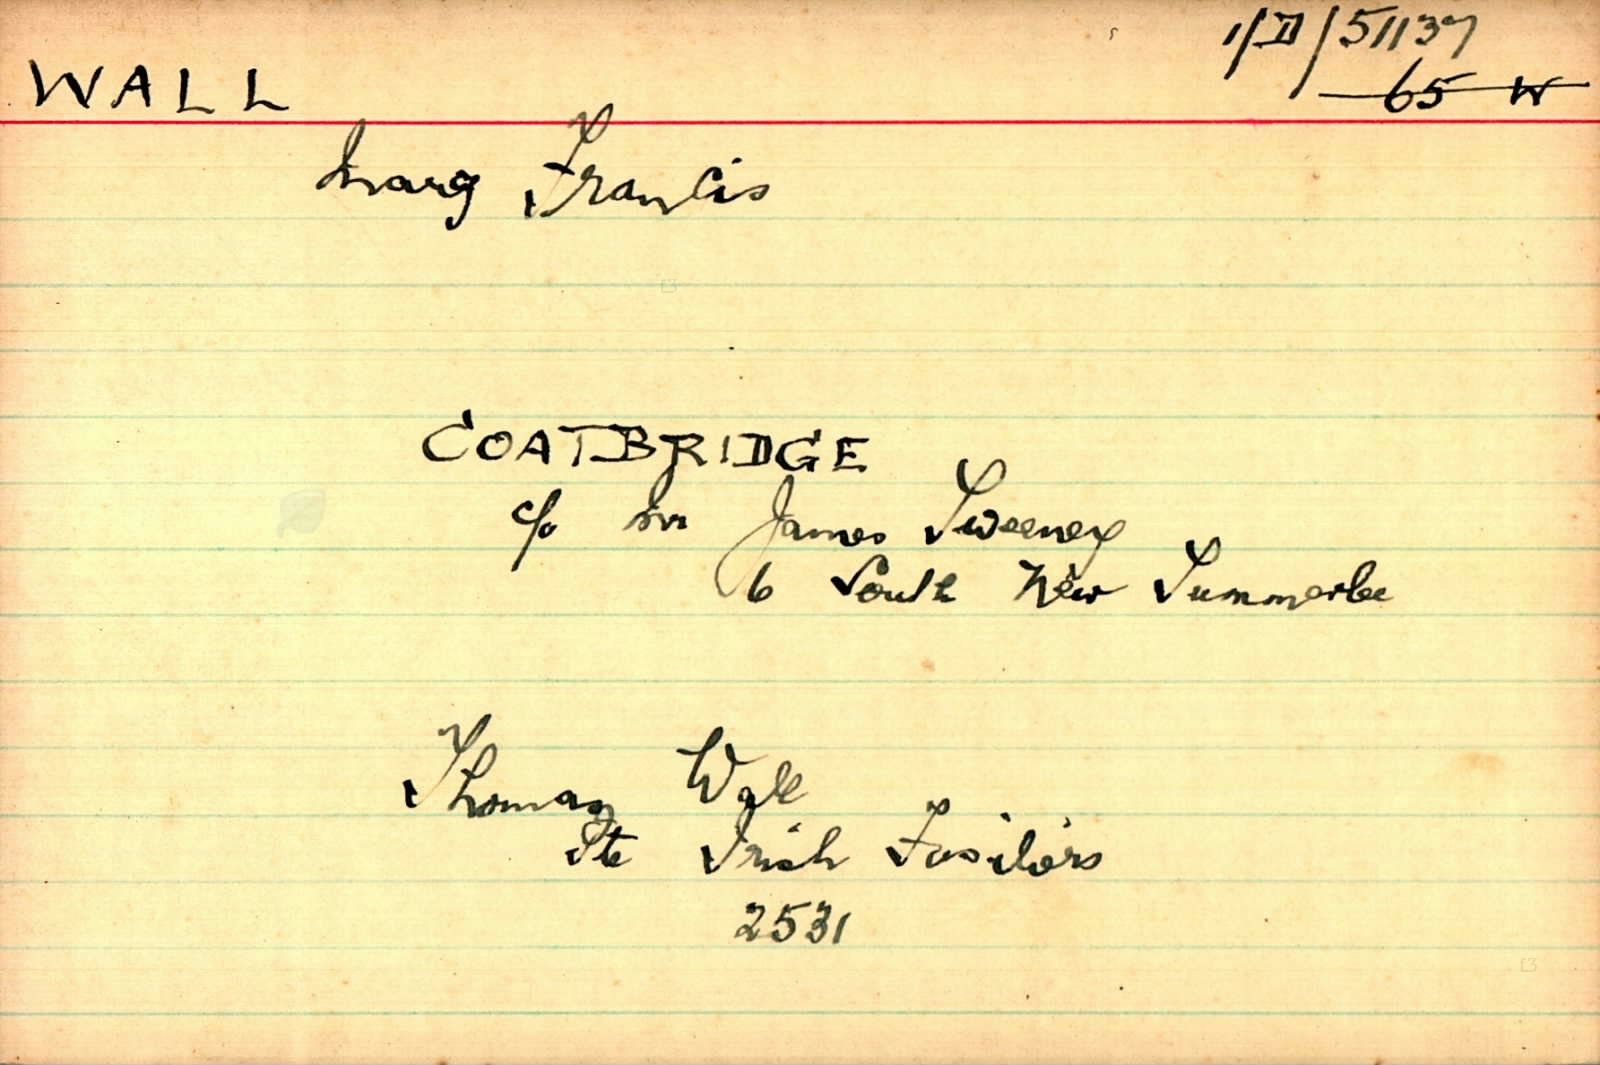 1/D/51137
WALL
65 W
Mary Francis
COATBRIDGE
c/o Mr James Sweeney
6 South New Summerlee
Thomas Wall
Pte Irish Fusiliers
2531